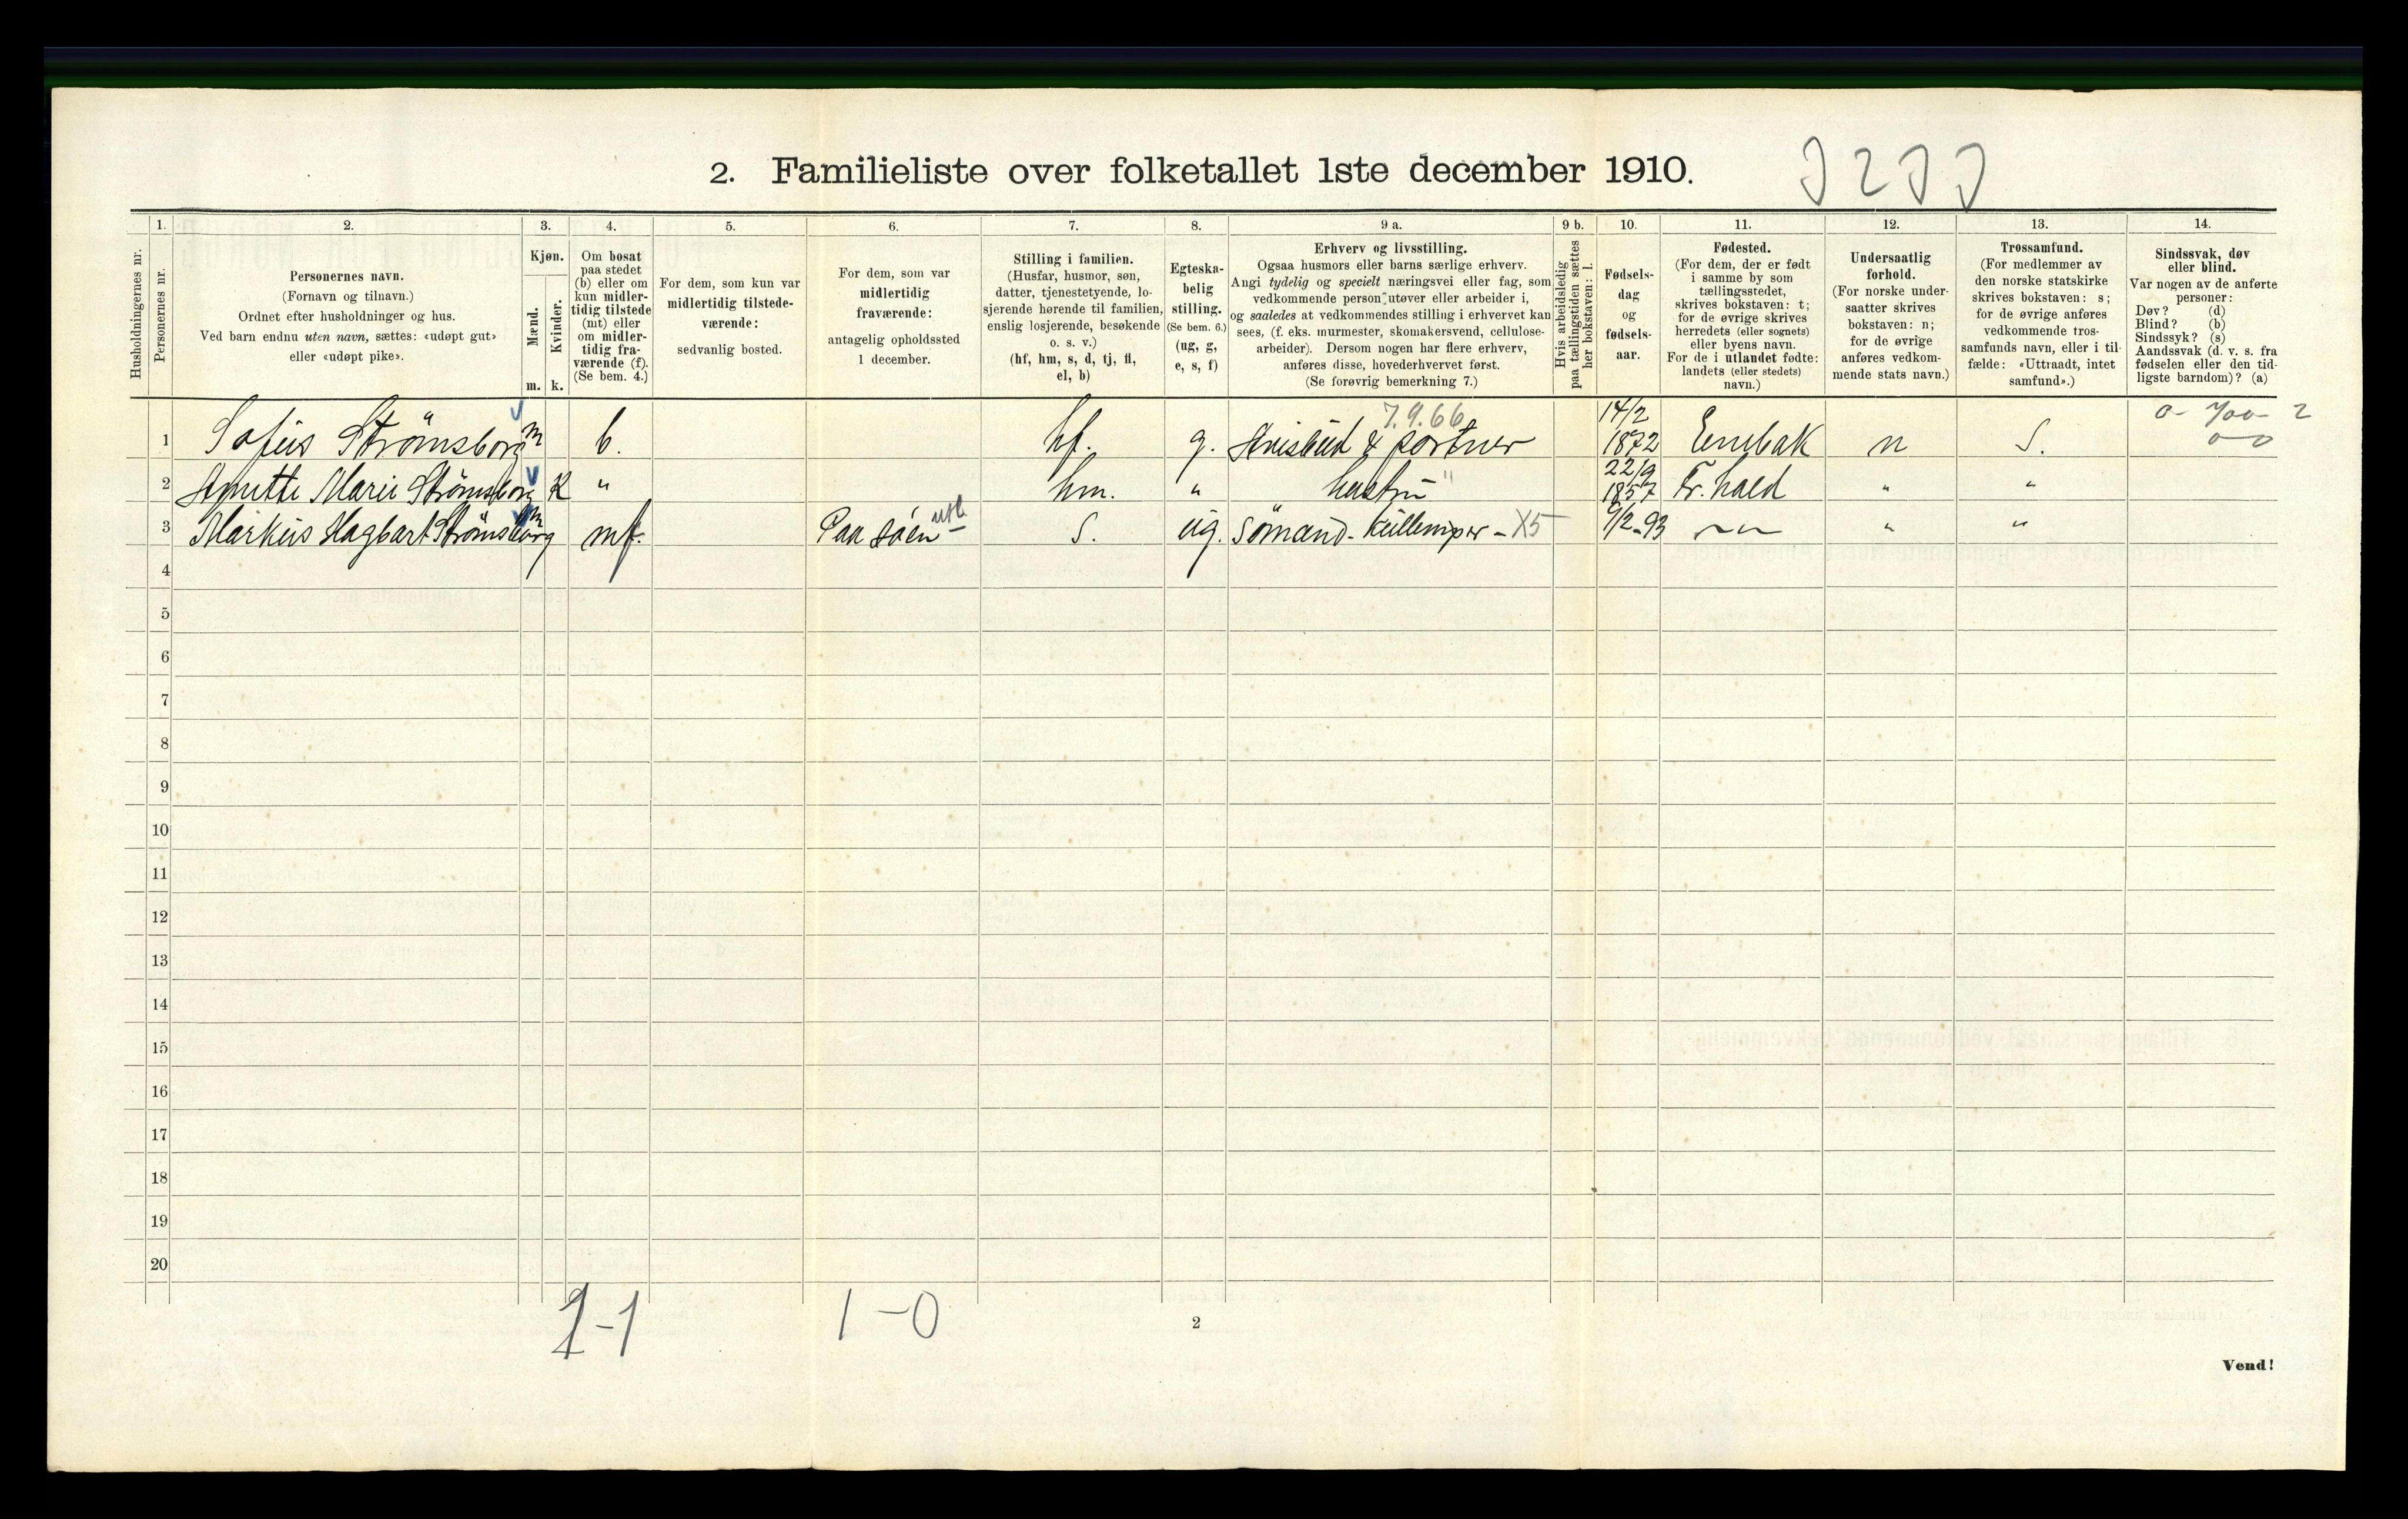 2. Familieliste over folketallet 1ste december 1910.
Husholdningernes nr.
1.
Personernes nr.
2.
Personernes navn.
(Fornavn og tilnavn.)
Ordnet efter husholdninger og hus.
Ved barn endnu uten navn, sættes: «udøpt gut»
eller «udøpt pike».
3.
Kjøn.
Mænd.
Kvinder.
m. k.
4.
Om bosat
paa stedet
(b) eller om
kun midler-
tidig tilstede
(mt) eller
om midler-
tidig fra-
værende (f).
(Se bem. 4.)
5.
For dem, som kun var
midlertidig tilstede-
værende:
sedvanlig bosted.
6.
For dem, som var
midlertidig
fraværende:
antagelig opholdssted
1 december.
7.
Stilling i familien.
(Husfar, husmor, søn,
datter, tjenestetyende, lo-
sjerende hørende til familien,
enslig losjerende, besøkende
o. s. v.)
(hf, hm, s, d, tj, fl,
el, b)
8.
Egteska-
belig
stilling.
(Se bem. 6.)
(ug, g,
e, s, f)
9 a.
Erhverv og livsstilling.
Ogsaa husmors eller barns særlige erhverv.
Angi tydelig og specielt næringsvei eller fag, som
vedkommende person utøver eller arbeider i,
og saaledes at vedkommendes stilling i erhvervet kan
sees, (f. eks. murmester, skomakersvend, cellulose-
arbeider). Dersom nogen har flere erhverv,
anføres disse, hovederhvervet først.
(Se forøvrig bemerkning 7.)
9 b.
Hvis arbeidsledig
paa tællingstiden sættes
her bokstaven: l.
10.
Fødsels-
dag
og
fødsels-
aar.
11.
Fødested.
(For dem, der er født
i samme by som
tællingsstedet,
skrives bokstaven: t;
for de øvrige skrives
herredets (eller sognets)
eller byens navn.
For de i utlandet fødte:
landets (eller stedets)
navn.)
12.
Undersaatlig
forhold.
(For norske under-
saatter skrives
bokstaven: n;
for de øvrige
anføres vedkom-
mende stats navn.)
13.
Trossamfund.
(For medlemmer av
den norske statskirke
skrives bokstaven: s;
for de øvrige anføres
vedkommende tros-
samfunds navn, eller i til-
fælde: «Uttraadt, intet
samfund».)
14.
Sindssvak, døv
eller blind.
Var nogen av de anførte
personer:
Døv? (d)
Blind? (b)
Sindssyk? (s)
Aandssvak (d. v. s. fra
fødselen eller den tid-
ligste barndom)? (a)
7.9.66
1 Sofus Strömsborg m b. hf. g. & portner 14/2 1872 Enebak n S.
2 Marie Strömsborg K " hm. " hustru " 22/9 1857 Fr.hald " "
3 Markus Hagbart Strömsborg m mf. Paa søen utl. S. ug. Sömand - Kullemper - X5 9/2-93 " "
4
5
6
7
8
9
10
11
12
13
14
15
16
17
18
19
20
1-1 1-0
2
Vend!